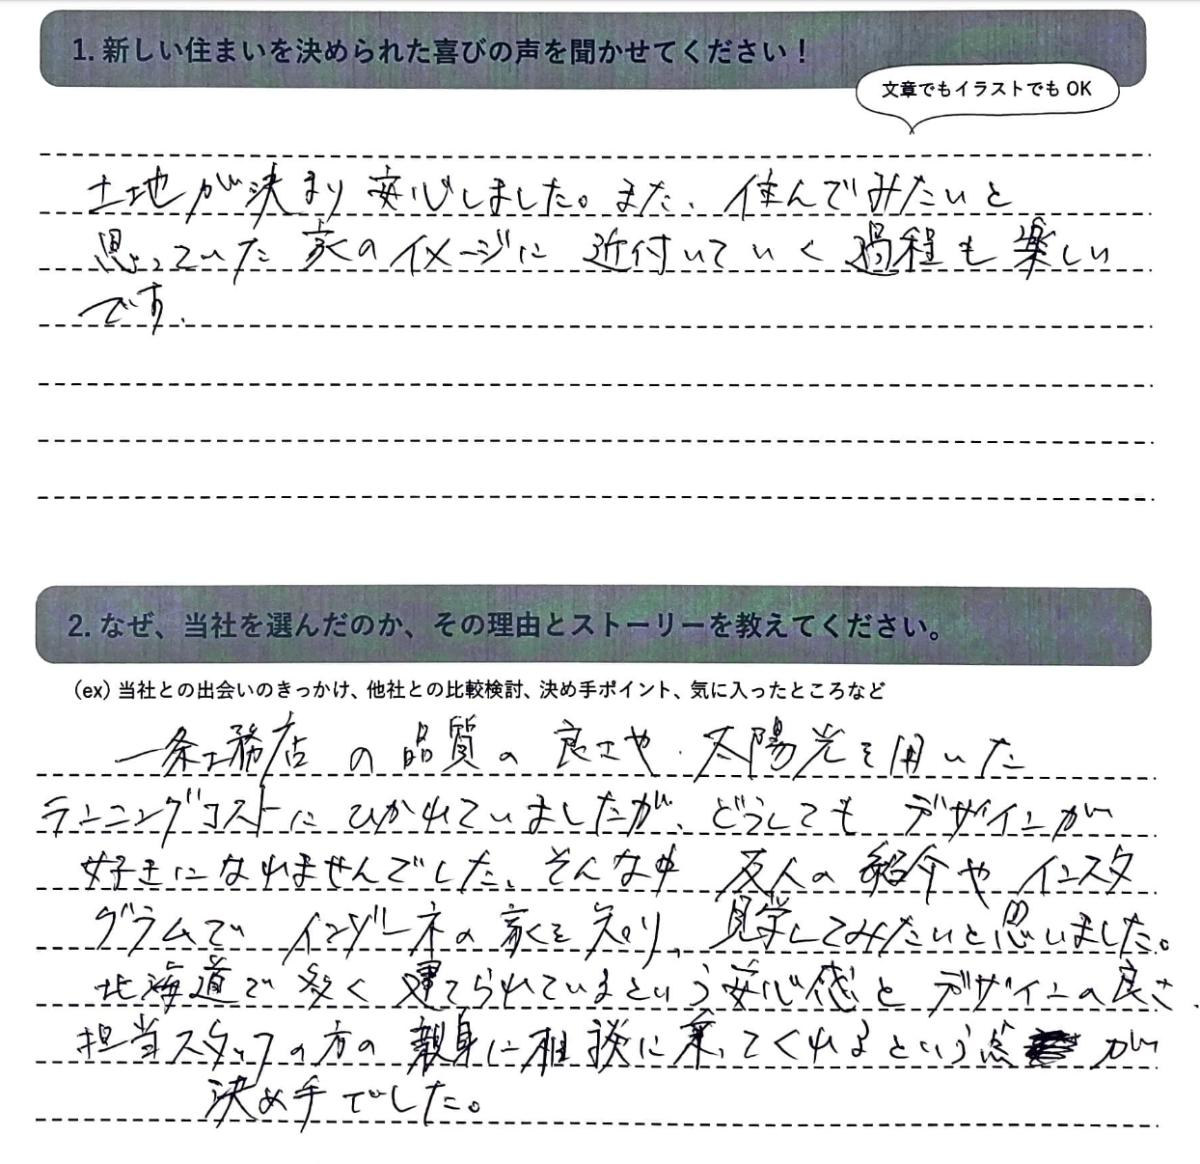 1. 新しい住まいを決められた喜びの声を聞かせてください！
文章でもイラストでも OK
土地が決まり安心しました。また、住んでみたいと
思っていた家のイメージに近付いていく過程も楽しい
です。
2. なぜ、当社を選んだのか、その理由とストーリーを教えてください。
（ex）当社との出会いのきっかけ、他社との比較検討、決め手ポイント、気に入ったところなど
一条工務店の品質の良さや太陽光を用いた
ランニングコストにひかれていましたが、どうしてもデザインが
好きになれませんでした。そんな中友人の紹介やインスタ
グラムでインゾーネの家を知り、見学してみたいと思いました。
北海道で多く建てられているという安心感とデザインの良さ、
担当スタッフの方の親身に相談に乗ってくれるという点が
決め手でした。